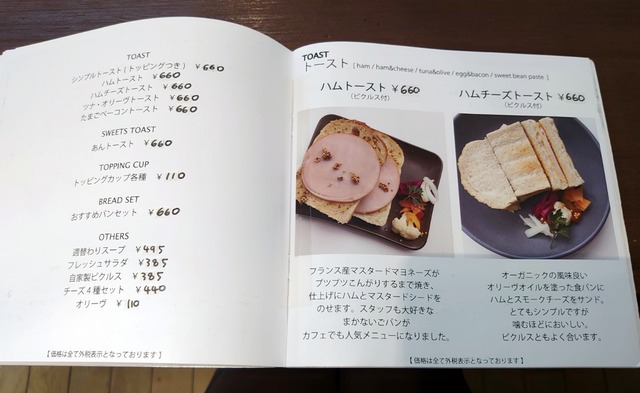 TOAST
シンプルトースト(トッピングつき) ¥660
ハムトースト ¥660
ハムチーズトースト ¥660
ツナ・オリーヴトースト ¥660
たまごベーコントースト ¥660
SWEETS TOAST
あんトースト ¥660
TOPPING CUP
トッピングカップ各種 ¥110
BREAD SET
おすすめパンセット ¥660
OTHERS
週替わりスープ ¥495
フレッシュサラダ ¥385
自家製ピクルス ¥385
チーズ4種セット ¥440
オリーヴ ¥110
【価格は全て外税表示となっております】
TOAST
トースト [ ham / ham&cheese / tuna&olive / egg&bacon / sweet bean paste ]
ハムトースト ¥660
(ピクルス付)
フランス産マスタードマヨネーズが
プツプツこんがりするまで焼き、
仕上げにハムとマスタードシードを
のせます。スタッフも大好きな
まかないごパンが
カフェでも人気メニューになりました。
ハムチーズトースト ¥660
(ピクルス付)
オーガニックの風味良い
オリーヴオイルを塗った食パンに
ハムとスモークチーズをサンド。
とてもシンプルですが
噛むほどにおいしい。
ピクルスともよく合います。
【価格は全て外税表示となっております】